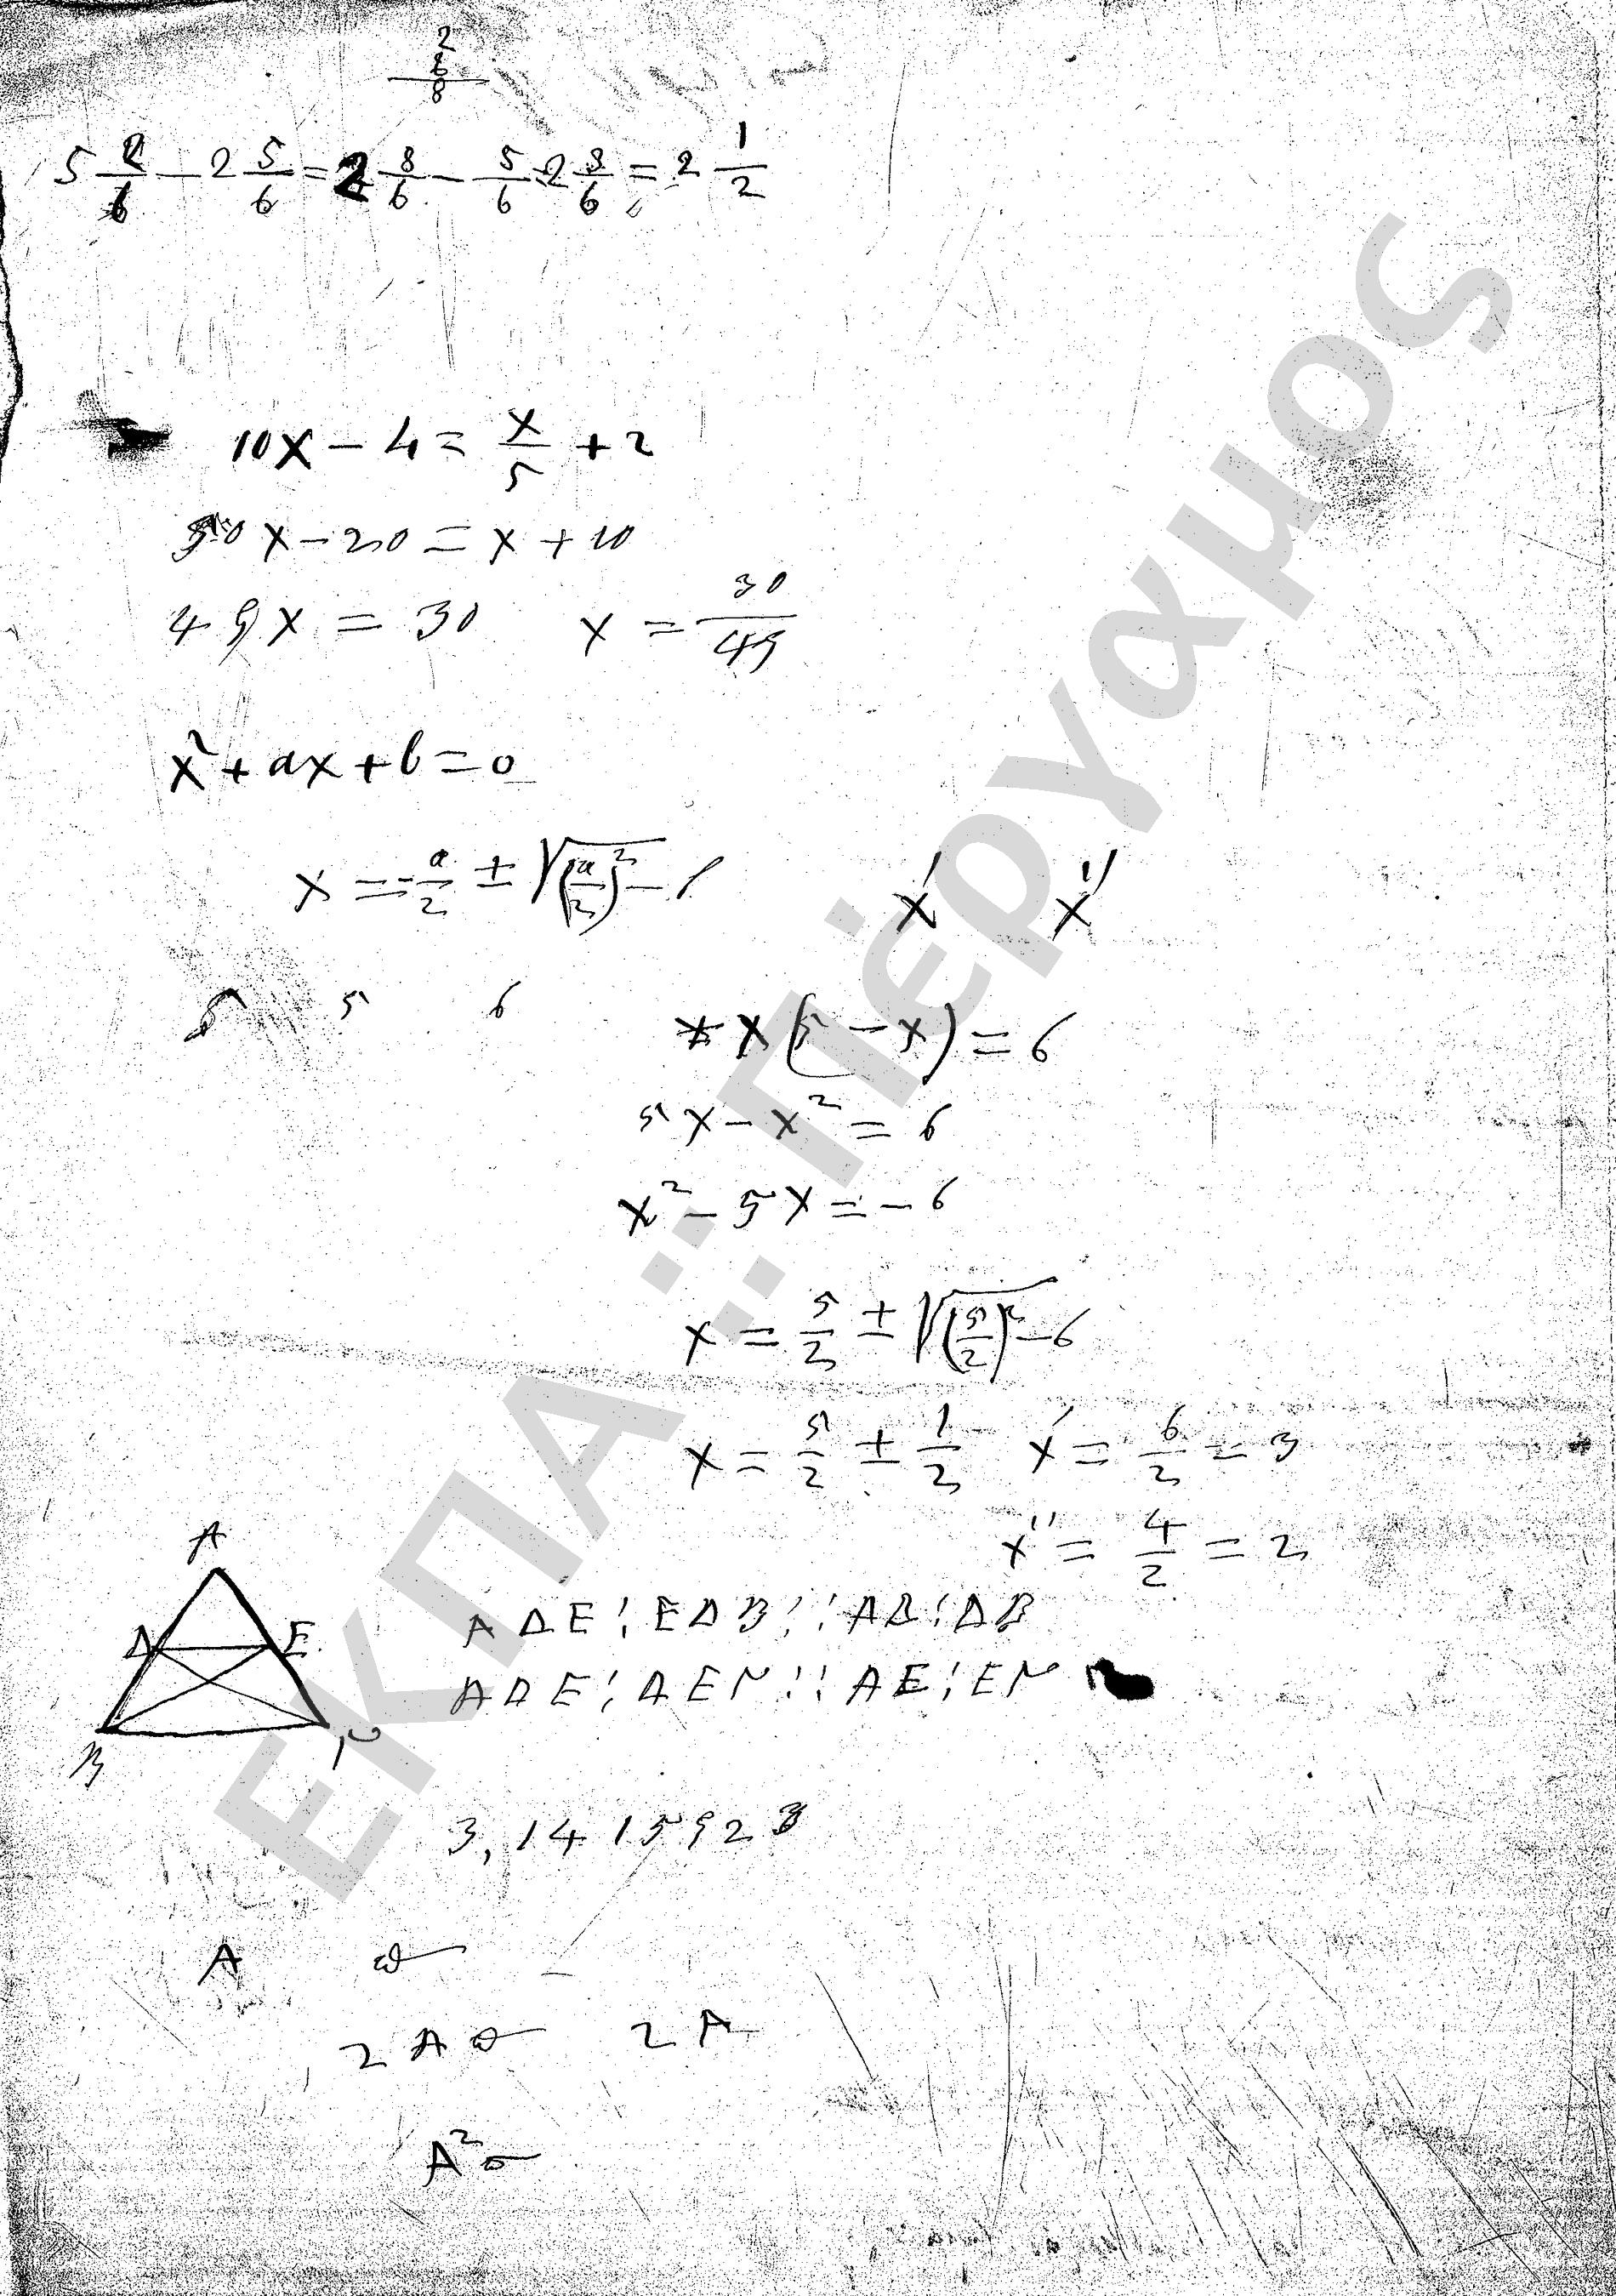 2
6
8
5 2/6 - 2 5/6 = 2 8/6 - 5/6 = 2 3/6 = 2 1/2
10x - 4 = x/5 + 2
50x - 20 = x + 10
49x = 30 x = 30/49
x² + ax + b = 0
x = -a/2 ± √(a/2)² - b x' x''
5 5 6
x(5 - x) = 6
5x - x² = 6
x² - 5x = -6
x = 5/2 ± √(5/2)² - 6
x = 5/2 ± 1/2 x' = 6/2 = 3
x'' = 4/2 = 2
Α
Δ Ε
Β Γ
ΑΔΕ : ΕΔΒ :: ΑΔ : ΔΒ
ΑΔΕ : ΔΕΓ :: ΑΕ : ΕΓ
3,1415923
Α ϖ
2Αϖ 2Α
Α²ϖ
ΕΚΠΑ :: Πέργαμος